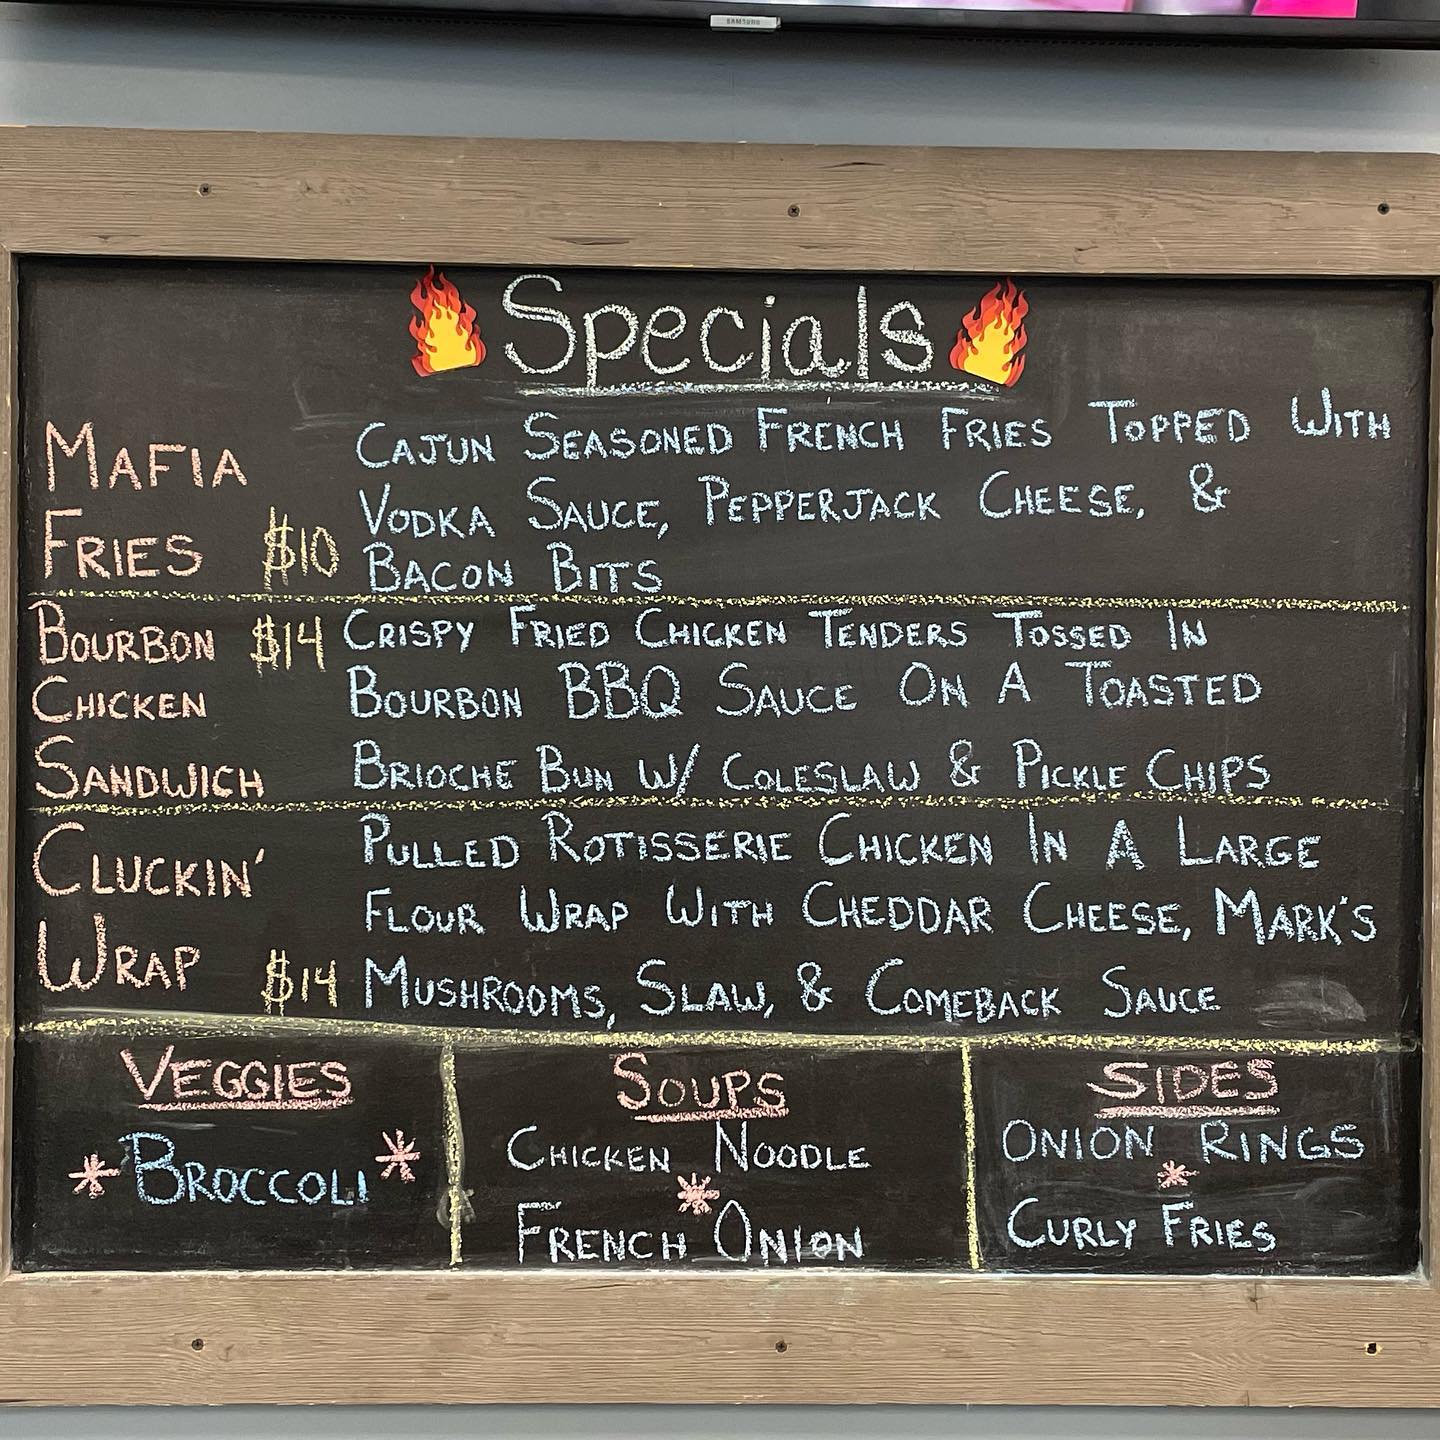 SAMSUNG
Specials
MAFIA
FRIES $10
CAJUN SEASONED FRENCH FRIES TOPPED WITH
VODKA SAUCE, PEPPERJACK CHEESE, &
BACON BITS
BOURBON $14
CHICKEN
SANDWICH
CRISPY FRIED CHICKEN TENDERS TOSSED IN
BOURBON BBQ SAUCE ON A TOASTED
BRIOCHE BUN W/ COLESLAW & PICKLE CHIPS
CLUCKIN'
WRAP $14
PULLED ROTISSERIE CHICKEN IN A LARGE
FLOUR WRAP WITH CHEDDAR CHEESE, MARK'S
MUSHROOMS, SLAW, & COMEBACK SAUCE
VEGGIES
*BROCCOLI*
SOUPS
CHICKEN NOODLE
*
FRENCH ONION
SIDES
ONION RINGS
*
CURLY FRIES